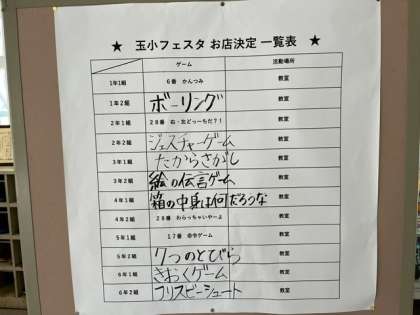 ★ 玉小フェスタ お店決定 一覧表 ★
ゲーム 活動場所
1年1組 6番 かんつみ 教室
1年2組 ボーリング 教室
2年1組 28番 右・左どっーちだ?! 教室
2年2組 ジェスチャーゲーム 教室
3年1組 たからさがし 教室
3年2組 絵の伝言ゲーム 教室
4年1組 箱の中身は何だろうな 教室
4年2組 26番 わらっちゃいやーよ 教室
5年1組 17番 命令ゲーム 教室
5年2組 7つのとびら 教室
6年1組 きおくゲーム 教室
6年2組 フリスビーシュート 教室